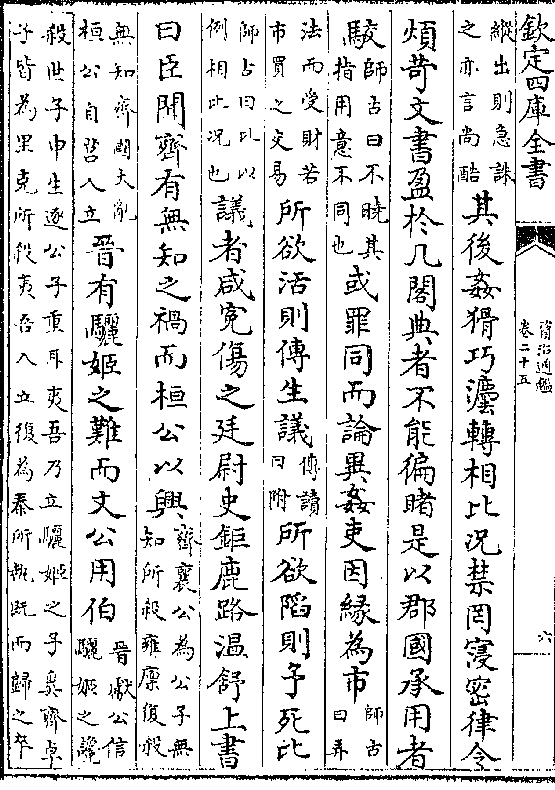 欽定四庫全書
資治通鑑
卷二十五
六
縱出則急誅之亦言尚酷其後姦猾巧灋轉相比況禁罔寖密律令
煩苛文書盈於几閣典者不能徧睹是以郡國承用者
駮師古曰不曉其指用意不同也或罪同而論異姦吏因緣為市師古曰弄
法而受財若市買之交易所欲活則傅生議傅讀曰附所欲陷則予死比
師古曰比以例相比況也議者咸寃傷之廷尉史鉅鹿路溫舒上書
曰臣聞齊有無知之禍而桓公以興齊襄公為公子無知所殺雍廩復殺
無知齊國大亂桓公自莒入立晉有驪姬之難而文公用伯晉獻公信驪姬之讒
殺世子申生逐公子重耳夷吾乃立驪姬之子奚齊卓子皆為里克所殺夷吾入立復為秦所執既而歸之卒